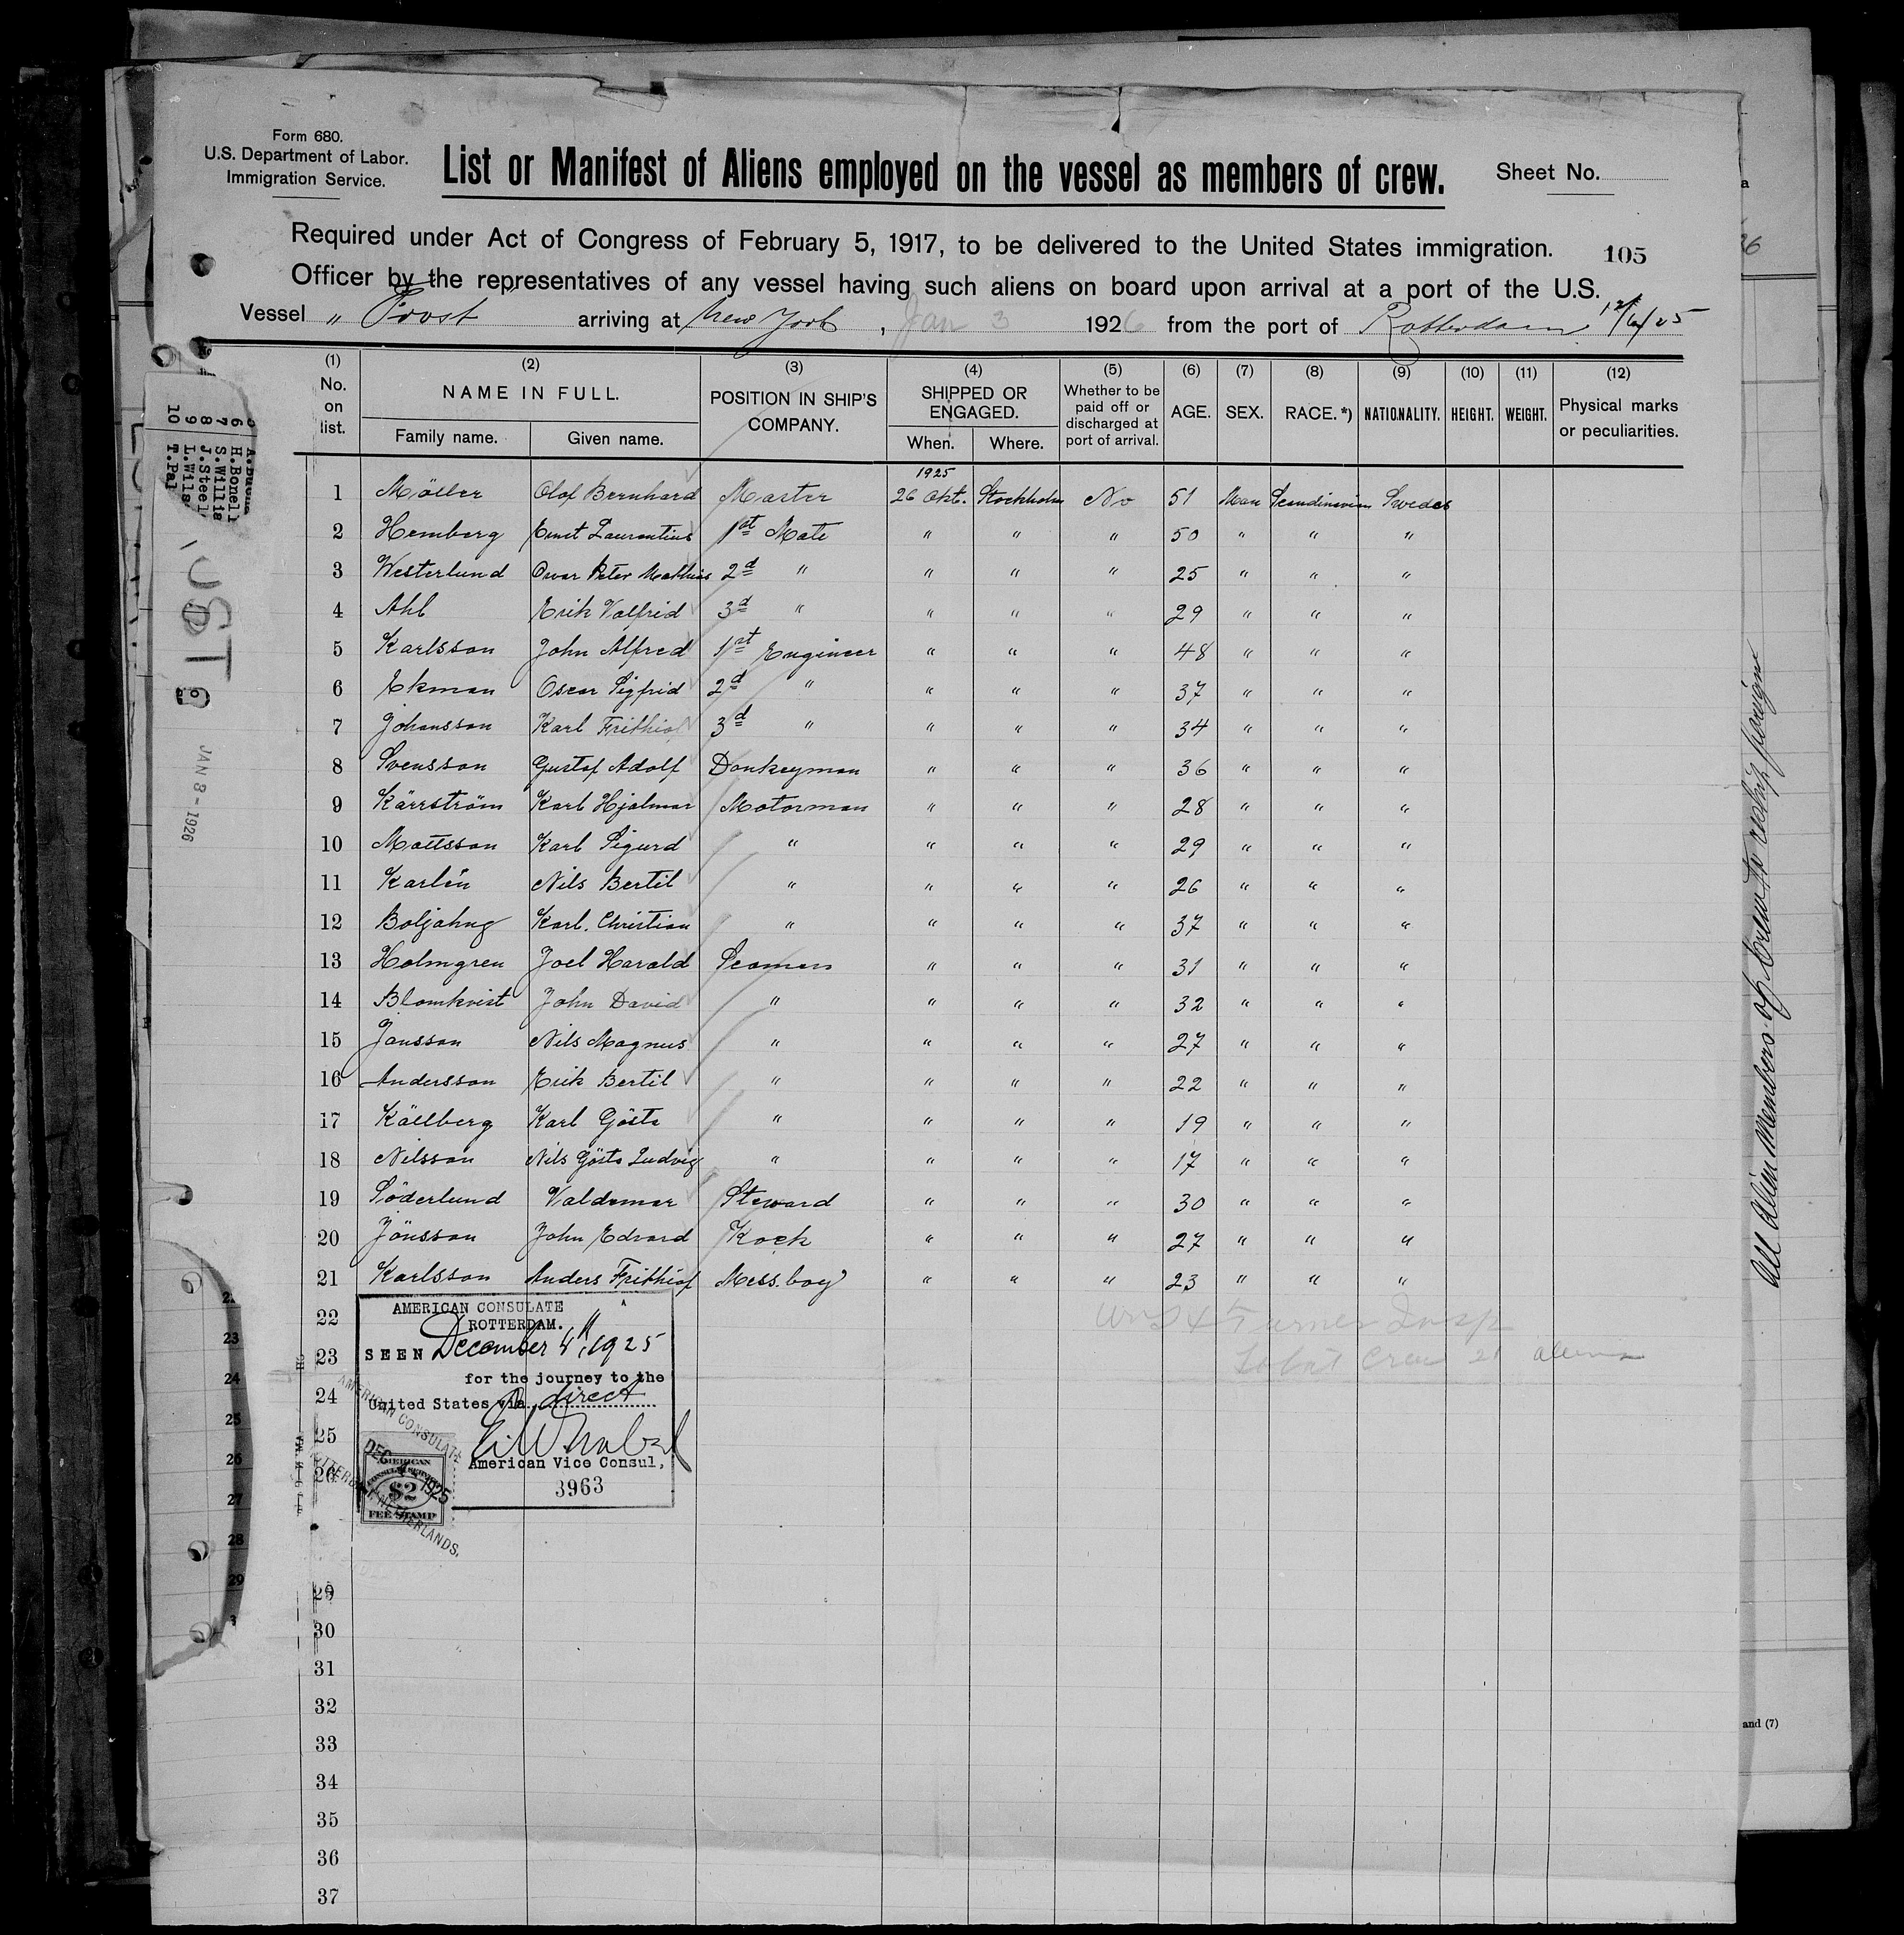 Form 680.
U.S. Department of Labor.
Immigration Service.
List or Manifest of Aliens employed on the vessel as members of crew.
Sheet No.
Required under Act of Congress of February 5, 1917, to be delivered to the United States immigration.
105
Officer by the representatives of any vessel having such aliens on board upon arrival at a port of the U.S.
Vessel arriving at New York, Jan 3 1926 from the port of Rotterdam 12/6/25
(1) (2) (3) (4) (5) (6) (7) (8) (9) (10) (11) (12)
No. on list. NAME IN FULL. POSITION IN SHIP'S COMPANY. SHIPPED OR ENGAGED. Whether to be paid off or discharged at port of arrival. AGE. SEX. RACE.*) NATIONALITY. HEIGHT. WEIGHT. Physical marks or peculiarities.
Family name. Given name. When. Where.
1925
1 Möller Olof Bernhard Master 26 Okt. Stockholm No 51 Man Scandinavian Swedes
2 Hemberg Ernst Laurentius 1st Mate " " " 50 " " "
3 Westerlund Peter Mathias 2d " " " " 25 " " "
4 Ahl Erik Valfrid 3d " " " " 29 " " "
5 Karlsson John Alfred 1st Engineer " " " 48 " " "
6 Ekman Oscar Sigfrid 2d " " " " 37 " " "
7 Johansson Karl Frithiof 3d " " " " 34 " " "
8 Svensson Gustaf Adolf Donkeyman " " " 36 " " "
9 Kärrström Karl Hjalmar Motorman " " " 28 " " "
10 Mattsson Karl Sigurd " " " " 29 " " "
11 Karlén Nils Bertil " " " " 26 " " "
12 Karl. Christian " " " " 37 " " "
13 Holmgren Joel Harald Seaman " " " 31 " " "
14 Blomkvist John David " " " " 32 " " "
15 Jansson Nils Magnus " " " " 27 " " "
16 Andersson Erik Bertil " " " " 22 " " "
17 Källberg Karl Gösta " " " " 19 " " "
18 Nilsson Nils Gösta Ludvig " " " " 17 " " "
19 Söderlund Valdemar Steward " " " 30 " " "
20 Jönsson John Edvard Kock " " " 27 " " "
21 Karlsson Anders Frithiof Mess. boy " " " 23 " " "
22
23
24
25
26
29
30
31
32
33
34
35
36
37
AMERICAN CONSULATE
ROTTERDAM.
SEEN December 4th, 1925
for the journey to the
United States via direct
American Vice Consul,
3963
AMERICAN CONSULATE
DEC 4 1925
ROTTERDAM NETHERLANDS.
AMERICAN
CONSULAR SERVICE
$2
FEE STAMP
Turner Insp
Total Crew 21 aliens
All Alien Members of Crew to reship foreign
6 H.Bonell
7 S.Willia
8 J.Steel
9 L.Wils
10 T.Pal
JAN 8 - 1926
23
24
25
26
27
28
29
and (7)